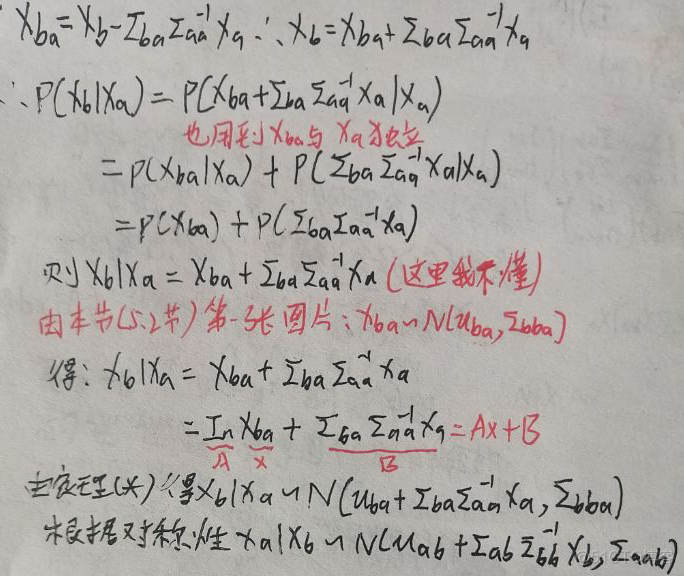 X_ba = X_b - Σ_ba Σ_aa^-1 X_a ∴ X_b = X_ba + Σ_ba Σ_aa^-1 X_a
∴ P(X_b|X_a) = P(X_ba + Σ_ba Σ_aa^-1 X_a | X_a)
也用到X_ba与X_a独立
= P(X_ba|X_a) + P(Σ_ba Σ_aa^-1 X_a|X_a)
= P(X_ba) + P(Σ_ba Σ_aa^-1 X_a)
则 X_b|X_a = X_ba + Σ_ba Σ_aa^-1 X_a (这里我不懂)
由本节(5.2节)第一张图片: X_ba ~ N(u_ba, Σ_bba)
得: X_b|X_a = X_ba + Σ_ba Σ_aa^-1 X_a
= I_n X_ba + Σ_ba Σ_aa^-1 X_a = Ax+B
A x B
由定理(*)得 X_b|X_a ~ N(u_ba + Σ_ba Σ_aa^-1 X_a, Σ_bba)
根据对称性 X_a|X_b ~ N(u_ab + Σ_ab Σ_bb^-1 X_b, Σ_aab)